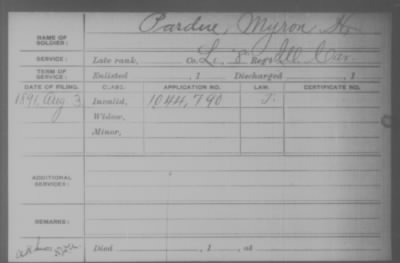 NAME OF SOLDIER: Pardue, Myron H.
SERVICE: Late rank, Co. L, "8" Reg't Ill. Cav.
TERM OF SERVICE: Enlisted , 1 Discharged , 1
DATE OF FILING. CLASS. APPLICATION NO. LAW. CERTIFICATE NO.
1891, Aug. 3 Invalid, 1044,790
Widow,
Minor,
ADDITIONAL SERVICES:
REMARKS:
Died , 1 , at